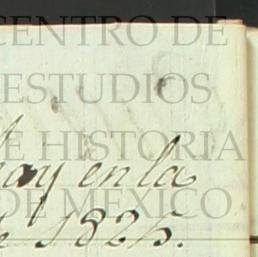 CENTRO DE
ESTUDIOS
DE HISTORIA
DE MÉXICO
hay en la
de 1825.